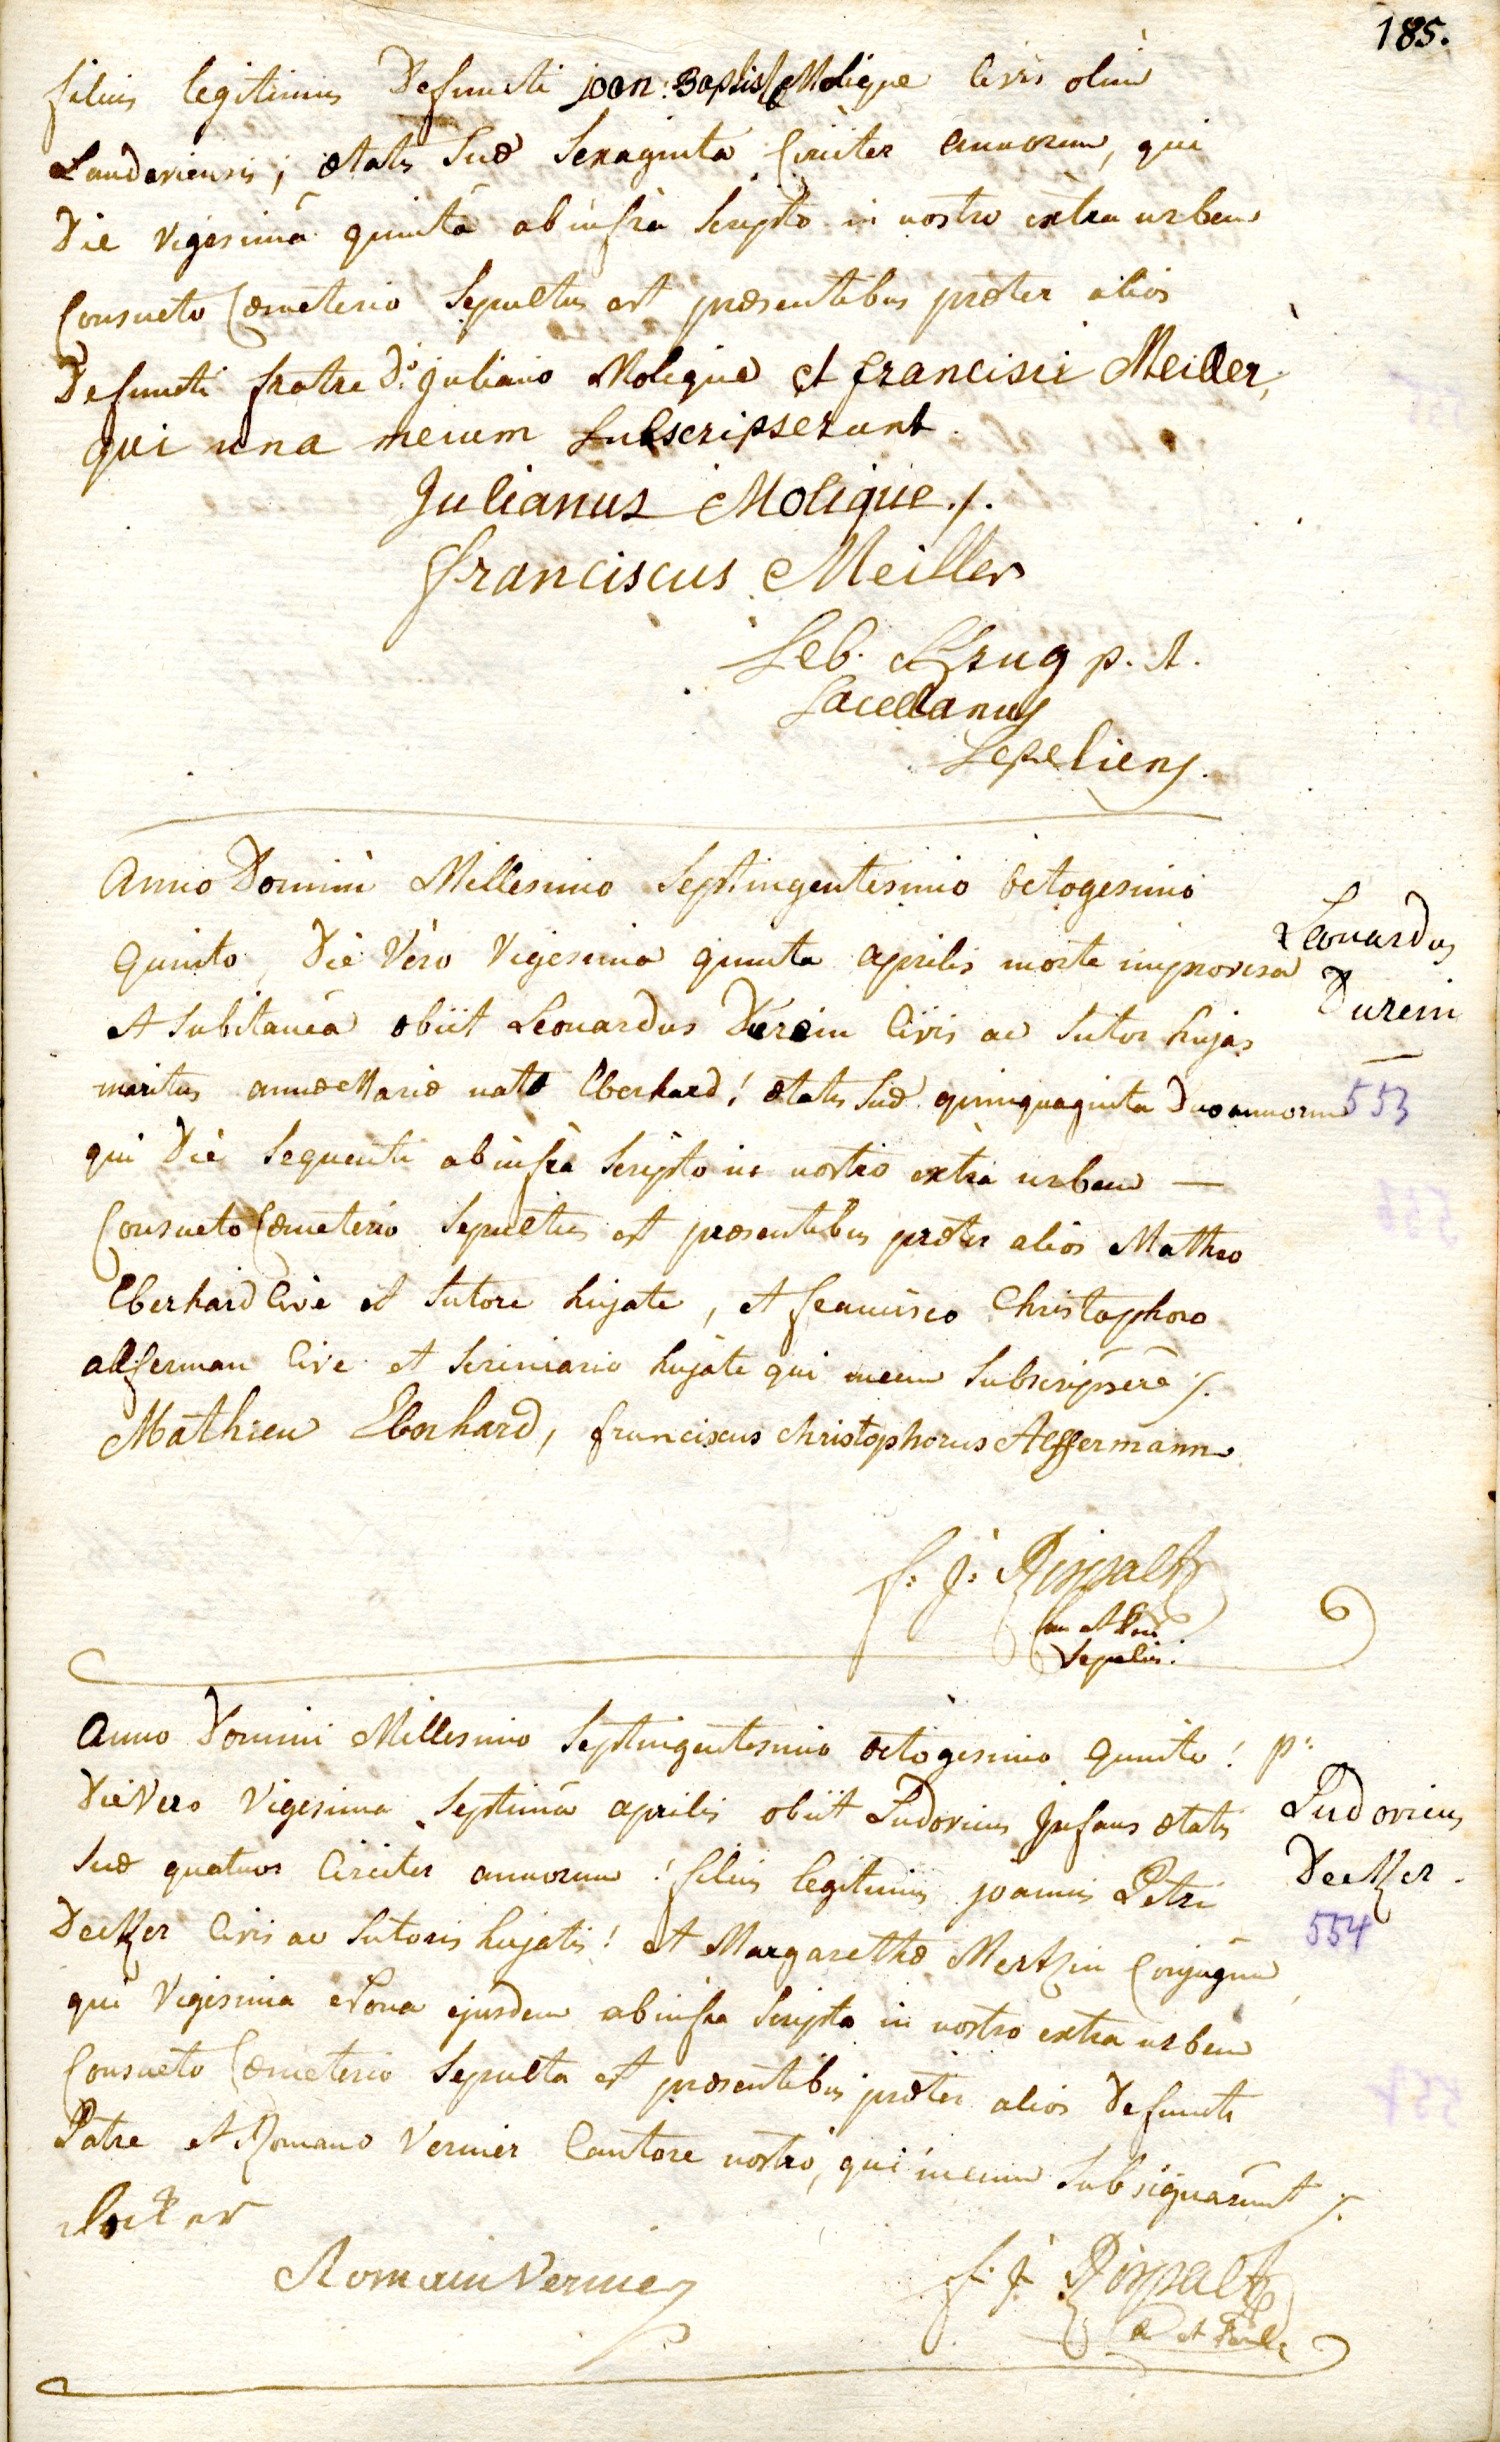 185.
filius legitimus Defuncti joan: Baptistæ Molique Civis olim
Landaviensis; ætatis Suæ Sexaginta Circiter annorum, qui
Die vigesimâ quintâ ab infra Scripto in nostro extra urbem
Consueto Cæmeterio Sepultus est præsentibus præter alios
Defuncti fratre D: Juliano Molique et francisci Meiller,
qui una mecum subscripserunt.
Julianus Molique ./.
franciscus Meiller
Seb. Krug p. t.
Sacellanus
Sepeliens.
Anno Domini Millesimo Septingentesimo octogesimo
Quinto, Die Vero Vigesima quinta aprilis morte improvisa
et Subitanea obiit Leonardus Durein Civis ac Sutor hujas
maritus annæ Mariæ natæ Eberhard! ætatis Suæ quinquaginta Duo annorum
qui Die Sequenti ab infra Scripto in nostro extra urbem —
Consueto Cæmeterio Sepultus est præsentibus præter alios Matheo
Eberhard Cive et Sutore hujate, et francisco Christophoro
alfferman Cive et Scriniario hujate qui mecum Subscripsere ./.
Mathieu Eberhard, franciscus christophorus Alffermann
Leonardus
Durein
553
f: J: Rippalt
Sepeliens:
Anno Domini Millesimo Septingentesimo octogesimo Quinto!
Die Vero Vigesima Septima aprilis obiit Ludovicus Infans ætatis
Suæ quatuor Circiter annorum! filius legitimus joannis Petri
Decker Civis ac Sutoris hujatis! et Margarethæ Mertzin Conjugum
qui Vigesima Nona ejusdem ab infra Scripto in nostro extra urbem
Consueto Cæmeterio Sepulta est præsentibus præter alios Defuncti
Patre et Romano Vernier Cantore nostro, qui mecum Subsignarunt ./.
p:
Ludovicus
Decker.
554
Romain Vernier
f. J. Rippalt